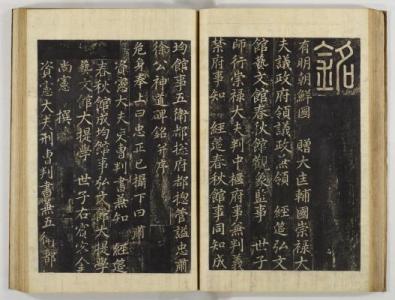 銘
有明朝鮮國　贈大匡輔國崇祿大
夫議政府領議政兼領　經筵弘文
館藝文館春秋館觀象監事　世子
師行崇祿大夫判中樞府事兼判義
禁府事知　經筵春秋館事同知成
均館事五衛都摠府都摠管謚忠肅
徐公神道碑銘幷序
危身奉上曰忠正己攝下曰肅
資憲大夫　曹判書兼知　經筵
春秋館成均館事弘文館大提學
藝文館大提學　世子右賓客金
尚憲　撰
資憲大夫刑曹判書兼五衛都